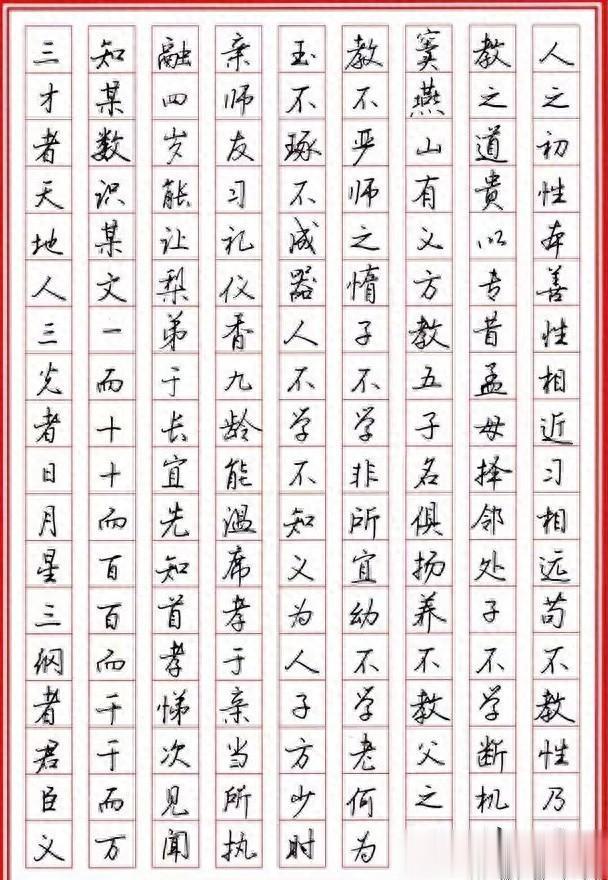 人之初性本善性相近习相远苟不教性乃
教之道貴以专昔孟母择邻处子不学断机
窦燕山有义方教五子名俱扬养不教父之
教不严师之惰子不学非所宜幼不学老何为
玉不琢不成器人不学不知义为人子方少时
亲师友习礼仪香九龄能温席孝于亲当所执
融四岁能让梨弟于长宜先知首孝悌次见闻
知某数识某文一而十十而百百而千千而万
三才者天地人三光者日月星三纲者君臣义